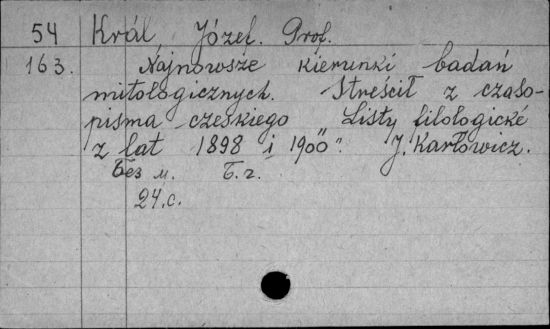 54 Král Józef. Prof.
163. Najnowsze kierunki badań
mitologicznych. Streścił z czaso-
pisma czeskiego Listy filologické
z lat 1898 i 1900". J. Karłowicz.
Без м. Б. г.
24.с.